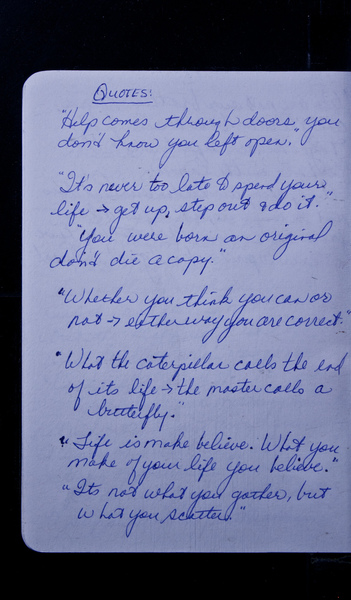 QUOTES:
"Help comes through doors you
don't know you left open."
"It's never too late to spend your
life → get up, step out & do it."
"You were born an original
don't die a copy."
"Whether you think you can or
not → either way you are correct."
"What the caterpillar calls the end
of its life → the master calls a
butterfly."
"Life is make believe. What you
make of your life you believe."
"Its not what you gather, but
what you scatter."